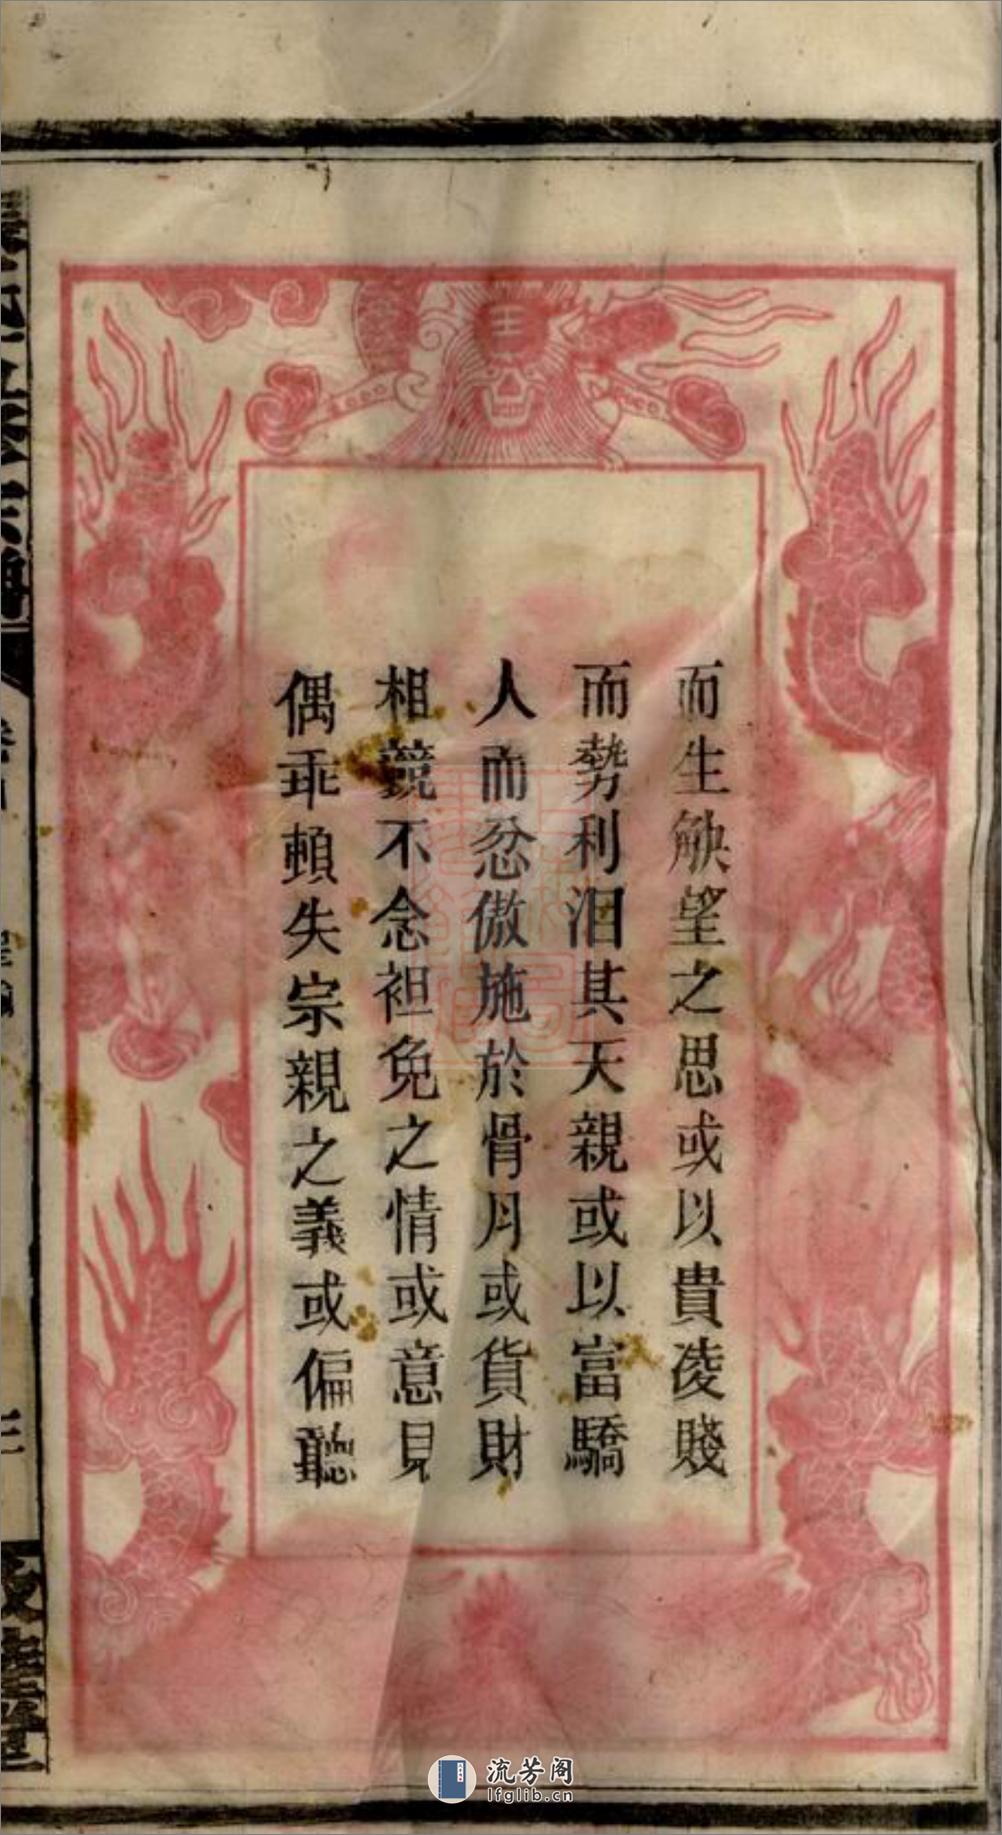 而生觖望之思或以貴凌賤
而勢利汨其天親或以富驕
人而忿傲施於骨月或貨財
相競不念袒免之情或意見
偶乖頼失宗親之義或偏聽
三
流芳阁
lfglib.cn